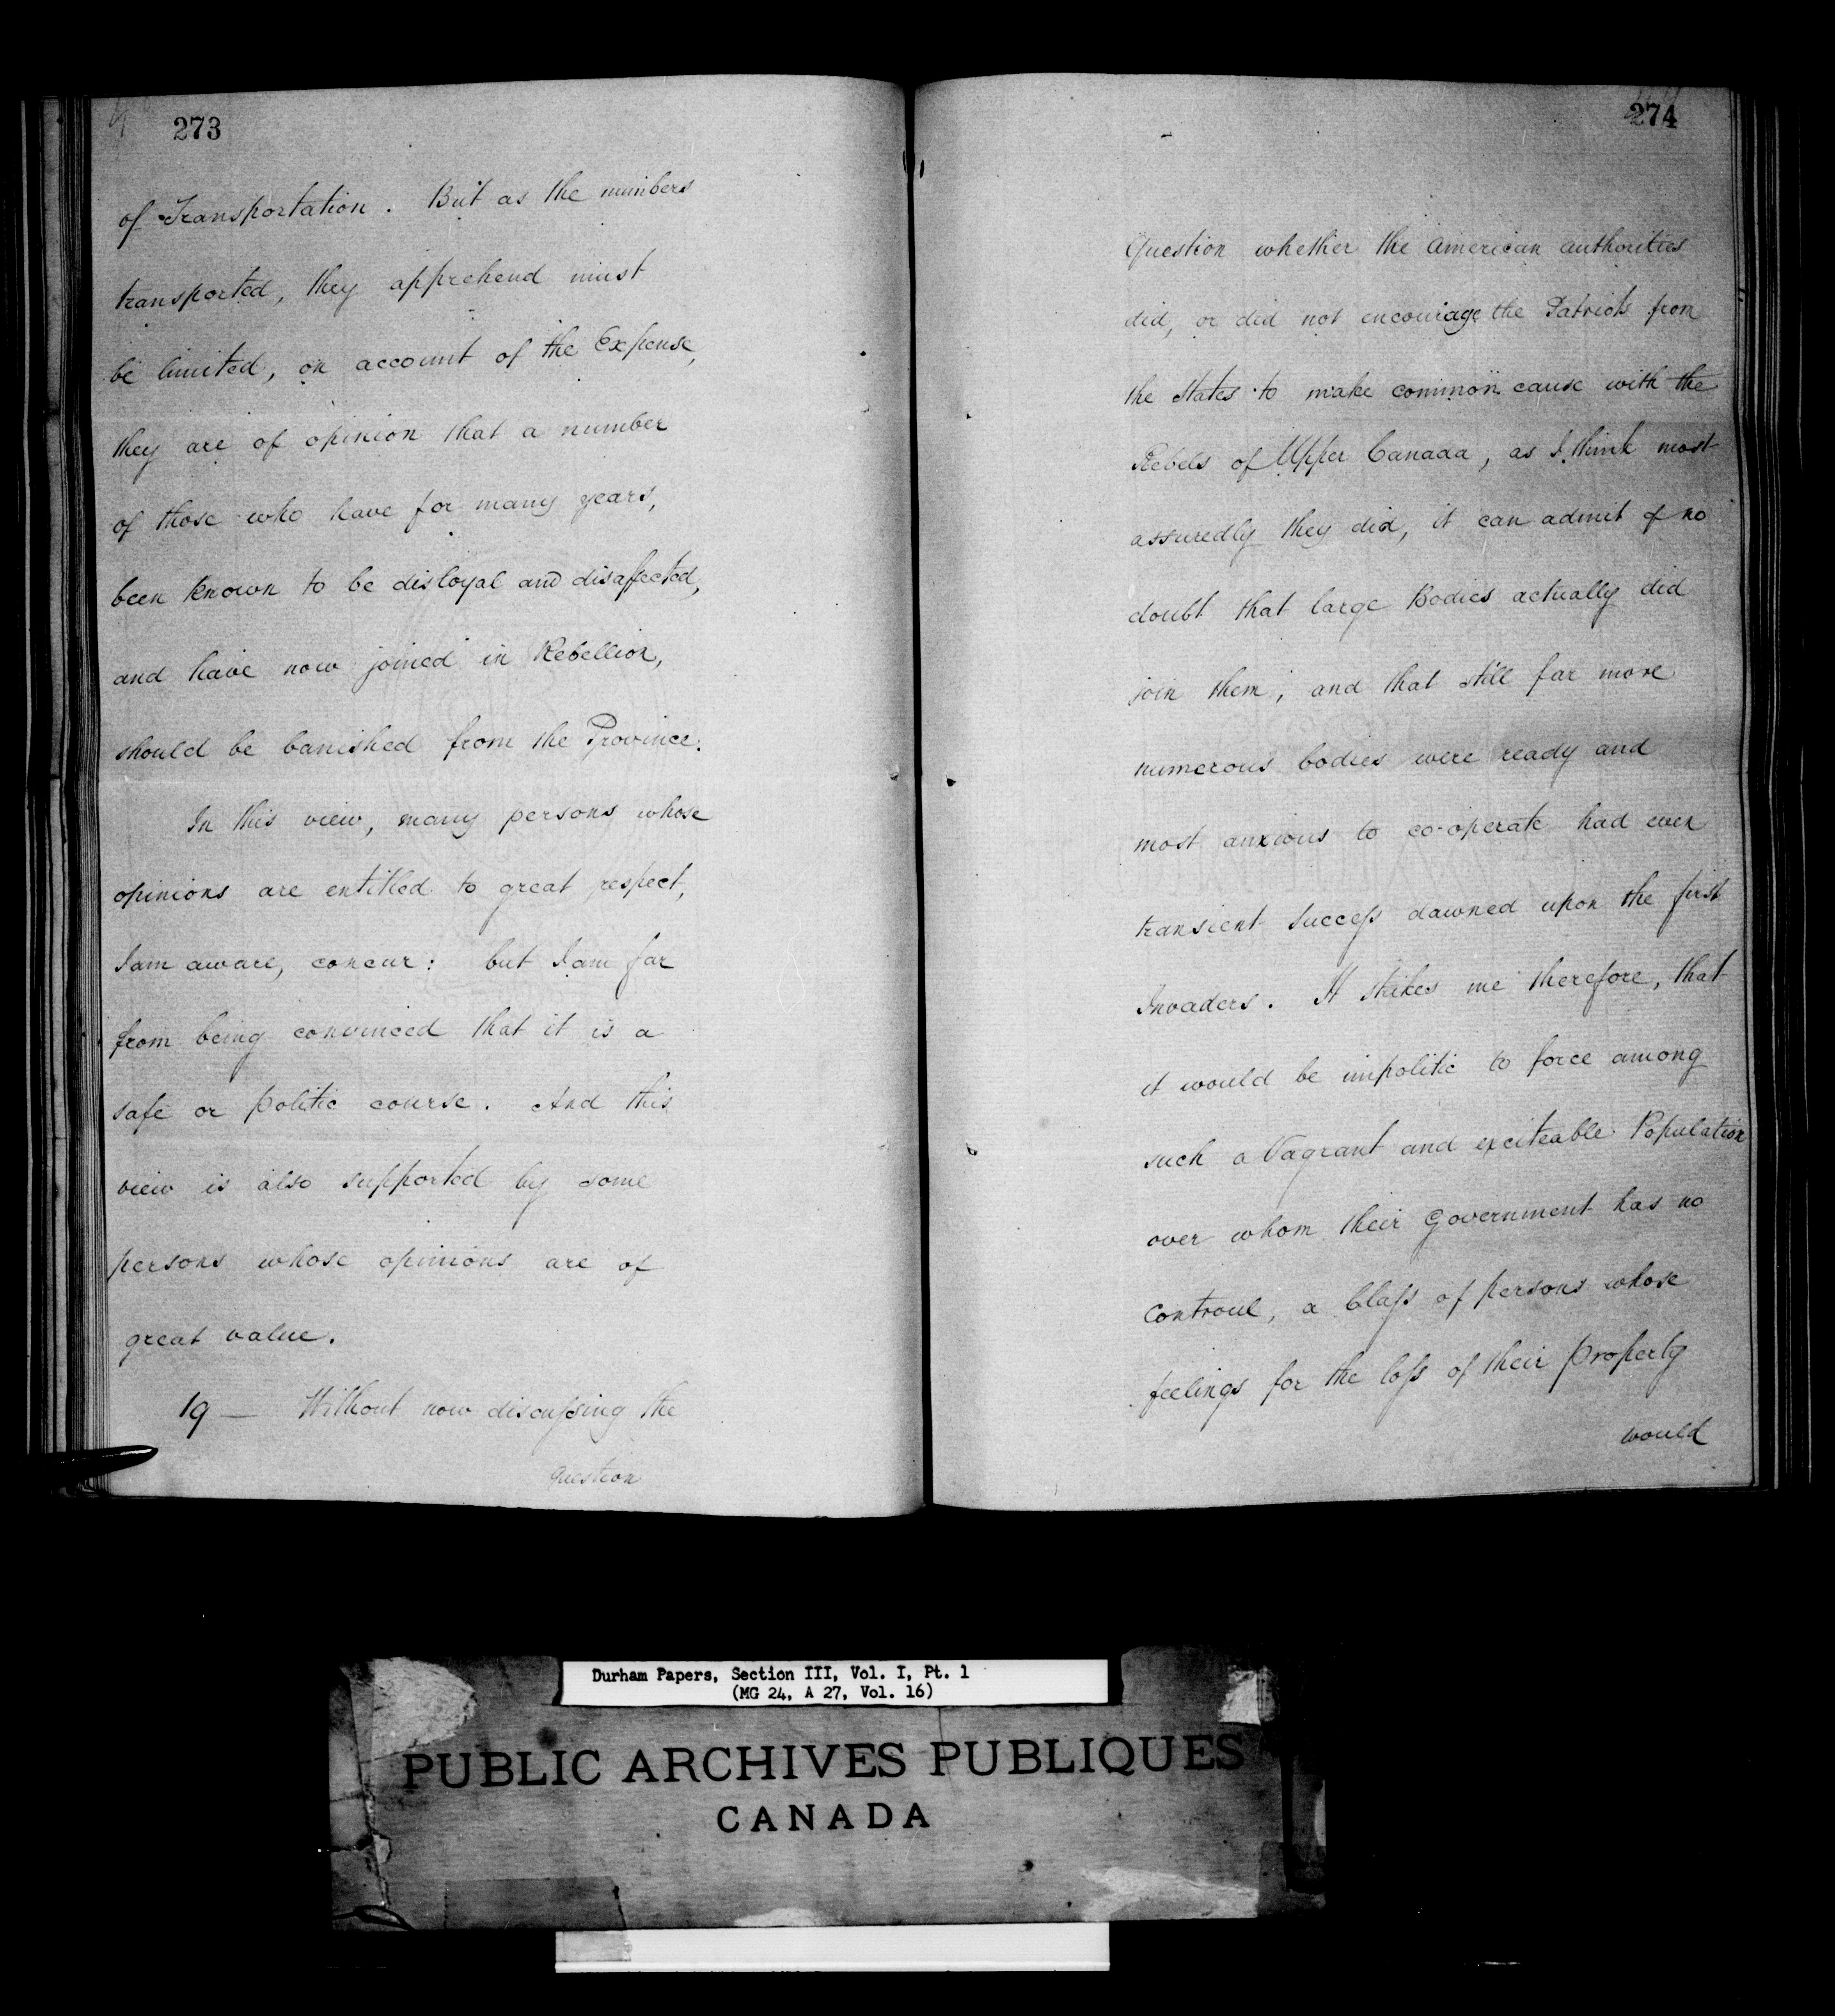 273
of Transportation. But as the numbers
transported, they apprehend must
be limited, on account of the Expense,
they are of opinion that a number
of those who have for many years,
been known to be disloyal and disaffected,
and have now joined in Rebellion,
should be banished from the Province.
In this view, many persons whose
opinions are entitled to great respect,
I am aware, concur: but I am far
from being convinced that it is a
safe or politic course. And this
view is also supported by some
persons whose opinions are of
great value.
19 — Without now discuſsing the
Question
274
Question whether the American authorities
did, or did not encourage the Patriots from
the States to make common cause with the
Rebels of Upper Canada, as I think most
assuredly they did, it can admit of no
doubt that large Bodies actually did
join them; and that still far more
numerous bodies were ready and
most anxious to co-operate had even
transient Succeſs dawned upon the first
Invaders. It strikes me therefore, that
it would be impolitic to force among
such a Vagrant and exciteable Population
over whom their Government has no
Controul, a Claſs of persons whose
feelings for the loſs of their property
would
Durham Papers, Section III, Vol. I, Pt. 1
(MG 24, A 27, Vol. 16)
PUBLIC ARCHIVES PUBLIQUES
CANADA